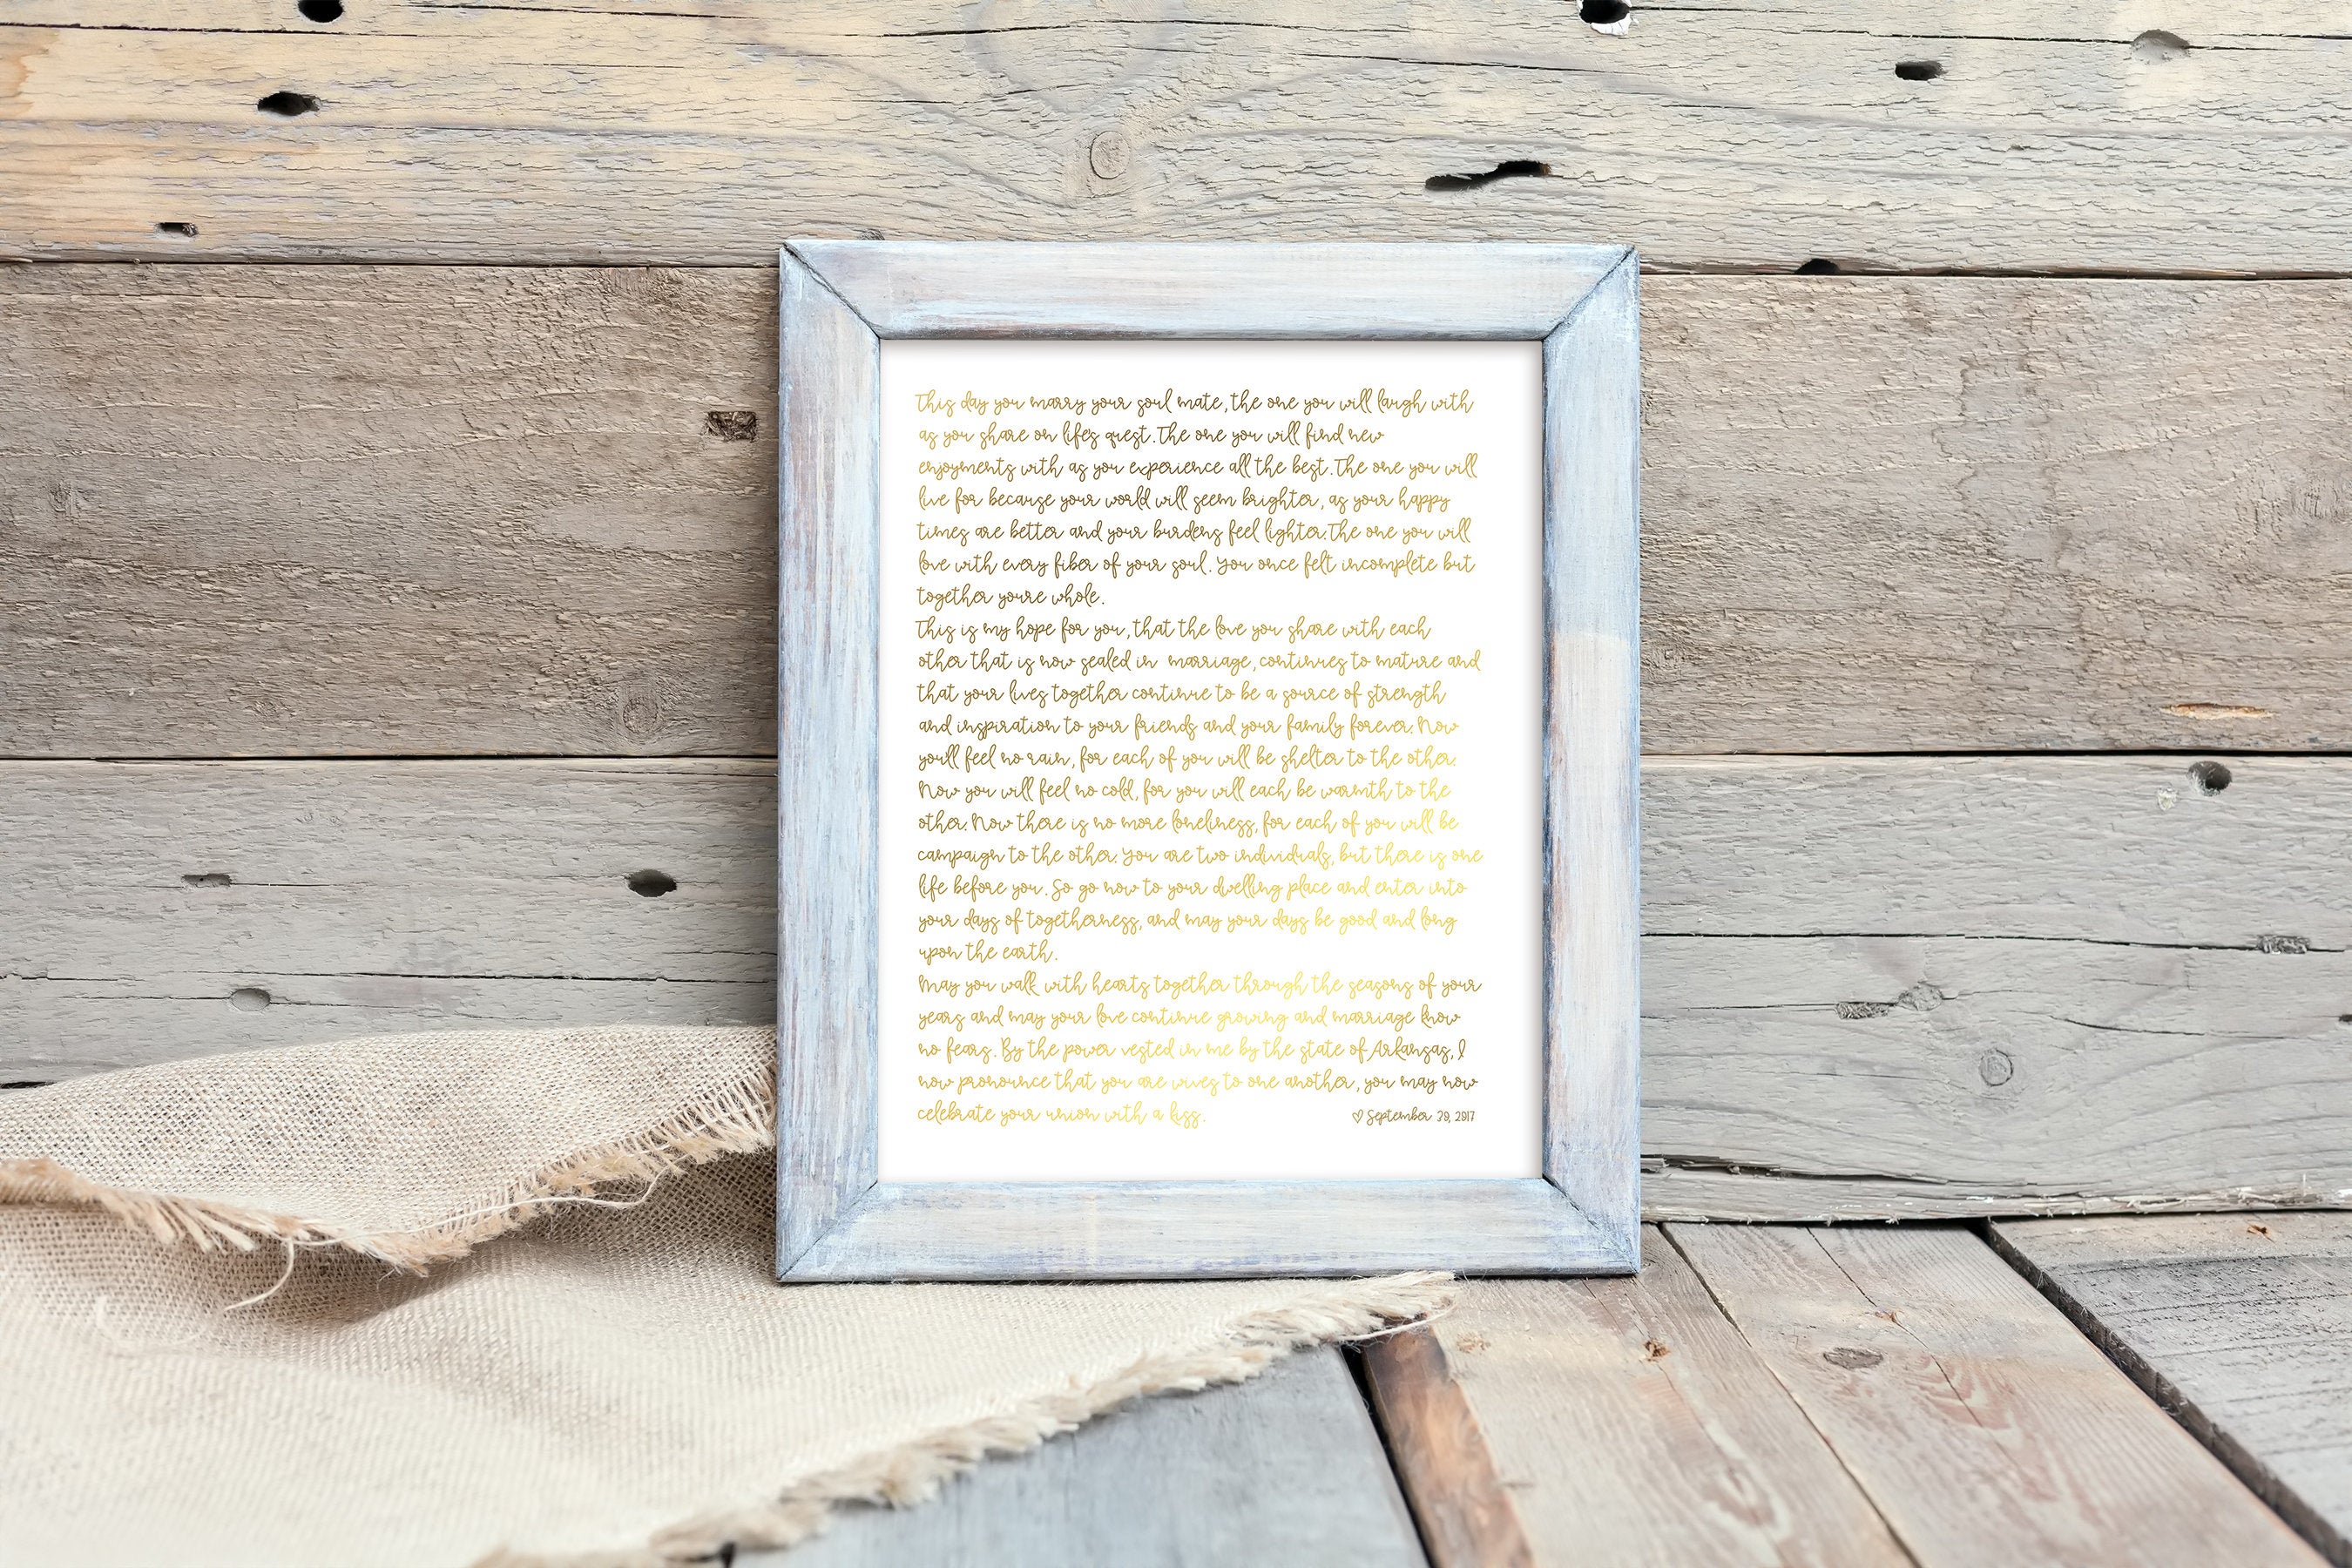 This day you marry your soul mate, the one you will laugh with
as you share on lifes quest. The one you will find new
enjoyments with as you experience all the best. The one you will
live for because your world will seem brighter, as your happy
times are better and your burdens feel lighter. The one you will
love with every fiber of your soul. You once felt incomplete but
together youre whole.
This is my hope for you, that the love you share with each
other that is now sealed in marriage, continues to mature and
that your lives together continue to be a source of strength
and inspiration to your friends and your family forever. Now
youll feel no rain, for each of you will be shelter to the other.
Now you will feel no cold, for you will each be warmth to the
other. Now there is no more loneliness, for each of you will be
campaign to the other. You are two individuals, but there is one
life before you. So go now to your dwelling place and enter into
your days of togetherness, and may your days be good and long
upon the earth.
May you walk with hearts together through the seasons of your
years and may your love continue growing and marriage know
no fears. By the power vested in me by the state of Arkansas, I
now pronounce that you are wives to one another, you may now
celebrate your union with a kiss. ♡ September 30, 2017